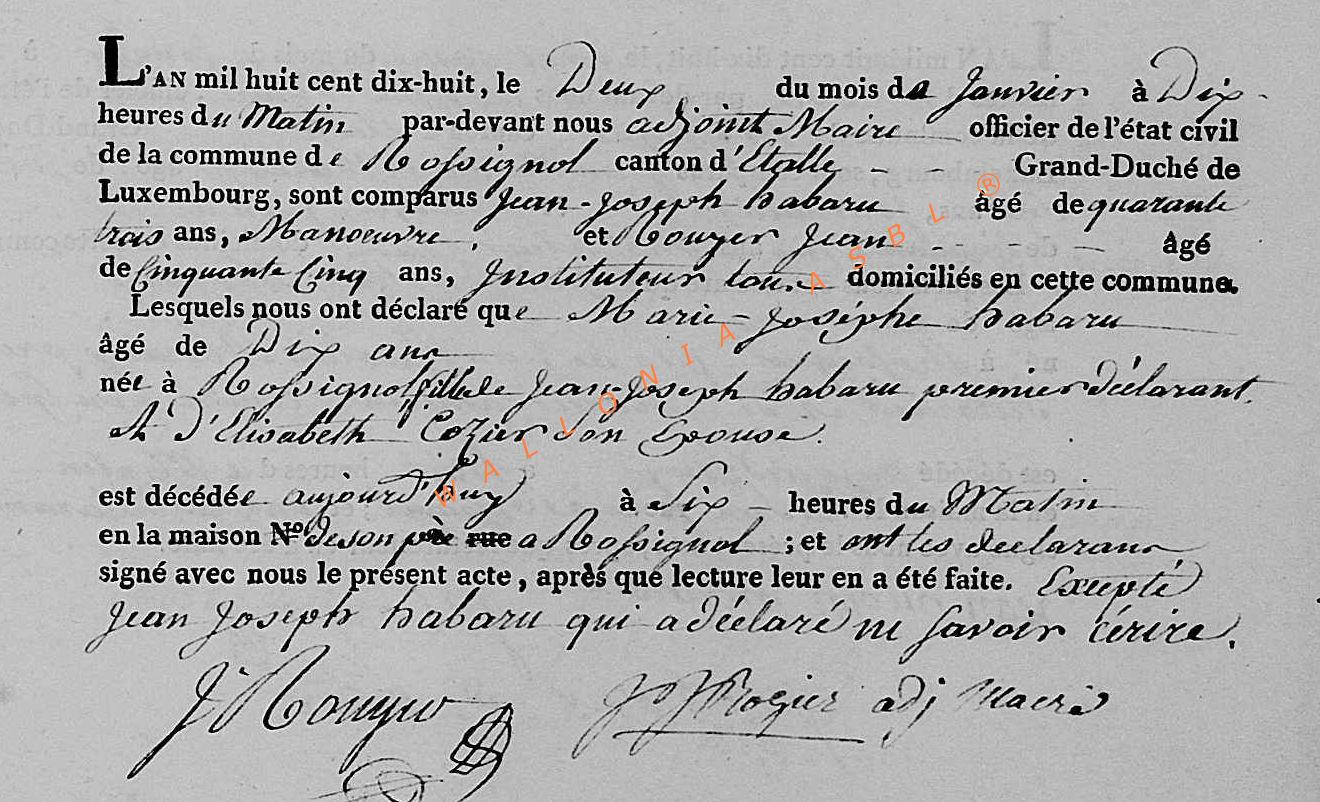 L'AN mil huit cent dix-huit, le Deux du mois de Janvier à Dix
heures du Matin par-devant nous adjoint Maire officier de l'état civil
de la commune de Rossignol canton d'Etalle - - Grand-Duché de
Luxembourg, sont comparus Jean-Joseph habaru âgé de quarante
trois ans, Manoeuvre, et Rouyer Jean - - - âgé
de Cinquante Cinq ans, Instituteur tous domiciliés en cette commune.
Lesquels nous ont déclaré que Marie-Joséphe habaru
âgé de Dix ans
née à Rossignol fille de Jean-Joseph habaru premier déclarant.
et d'Elisabeth Cozier Son Epouse.
est décédée aujourd'huy à Six - heures du Matin
en la maison N.º de son père rue a Rossignol ; et ont les declarans
signé avec nous le présent acte, après que lecture leur en a été faite. Excepté
Jean Joseph habaru qui a déclaré ne savoir écrire.
J Rouyer J J Rogier adj Maire
WALLONIA ASBL ®